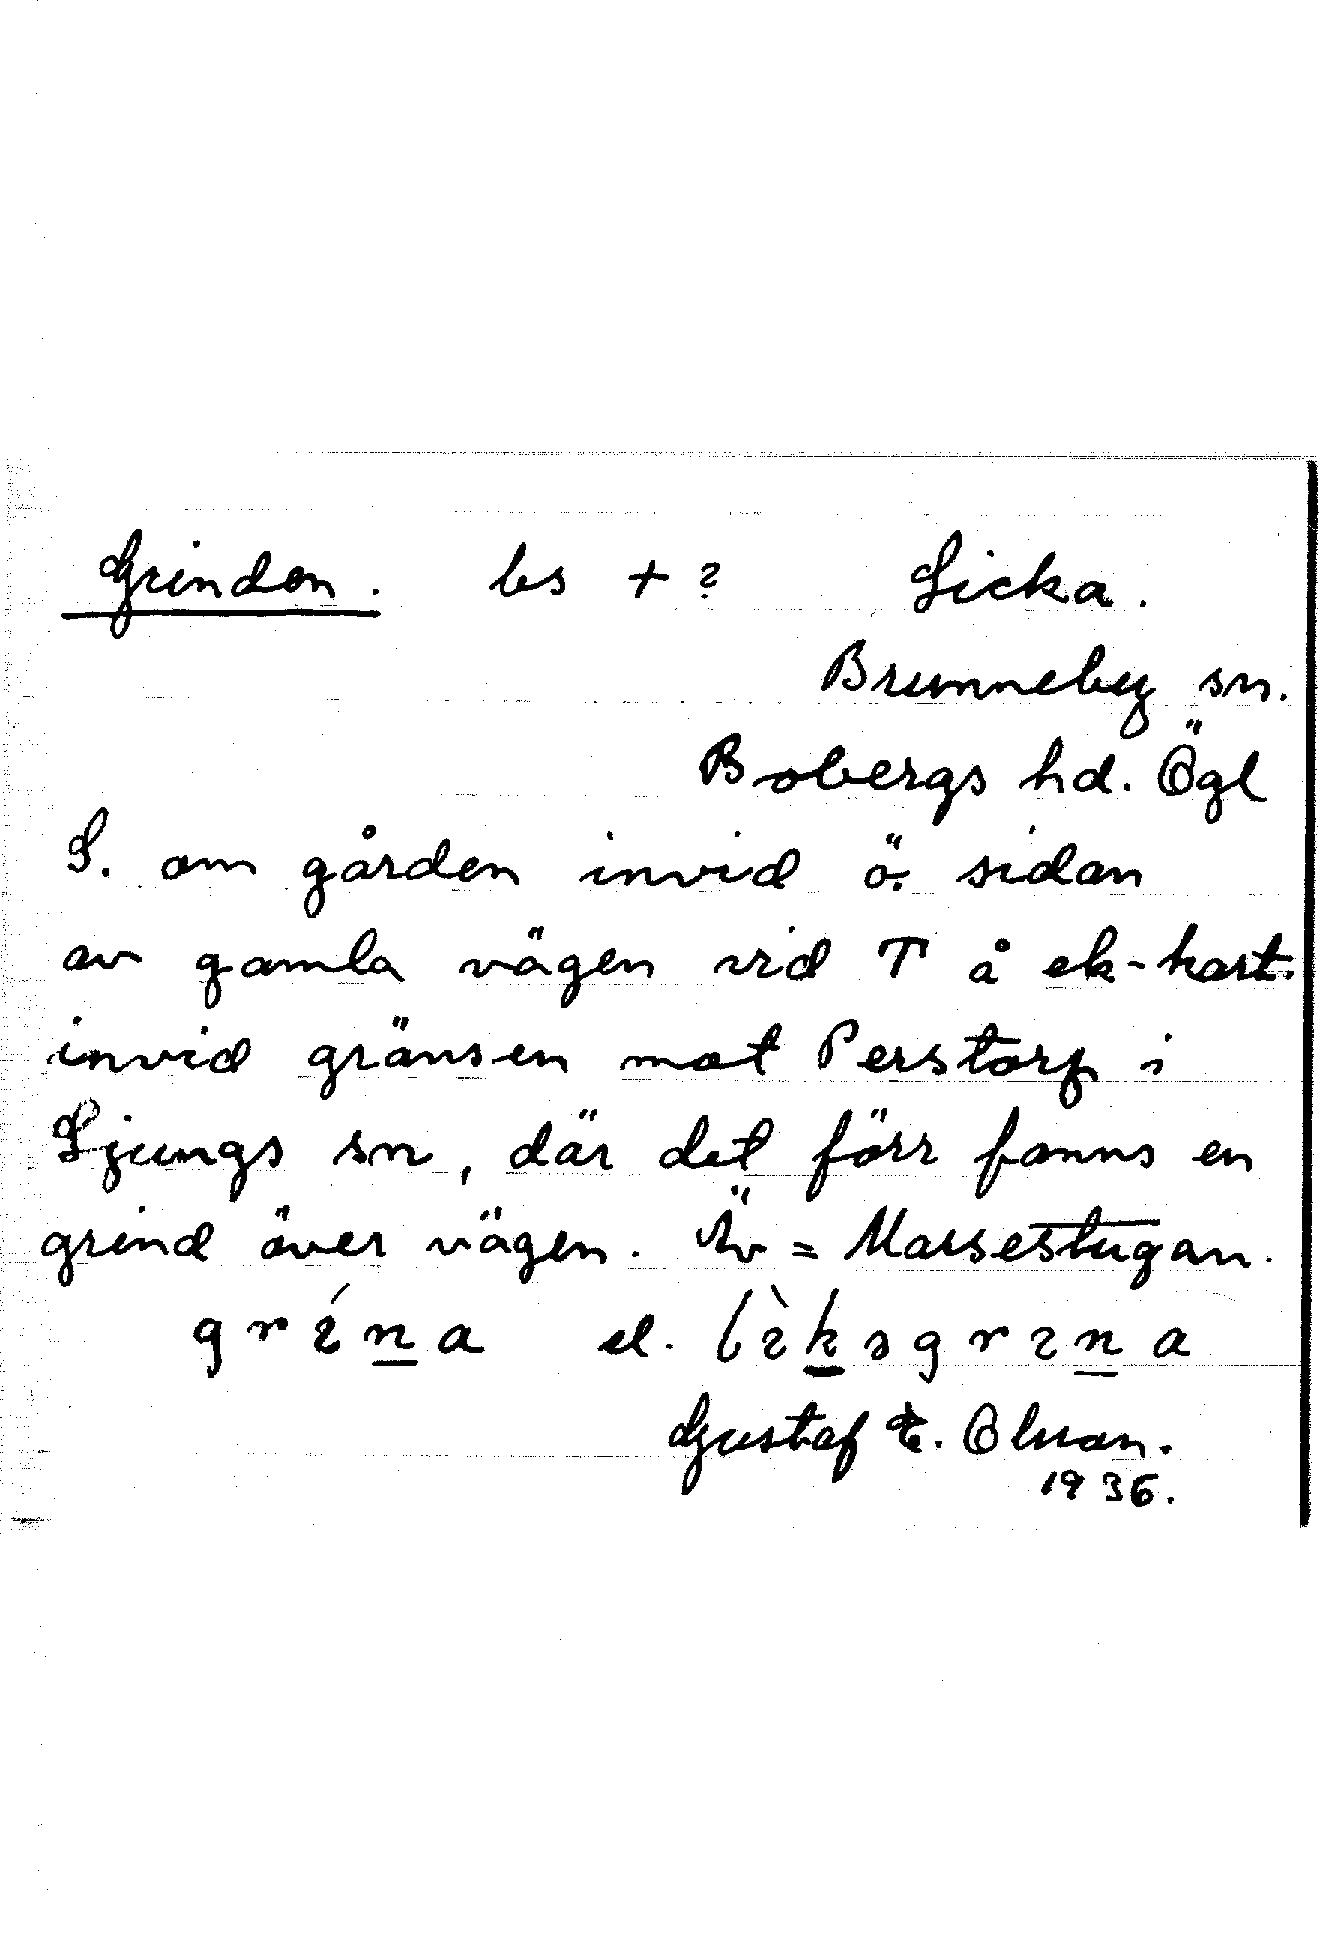 Grinden. bs + ? Licka.
Brunneby sn.
Bobergs hd. Ögl
S. om gården invid ö. sidan
av gamla vägen vid T å ek-kart.
invid gränsen mot Perstorp i
Ljungs sn, där det förr fanns en
grind över vägen. Äv = Massestugan.
gréna el. lìksgrena
Gustaf E. Olsson.
1936.